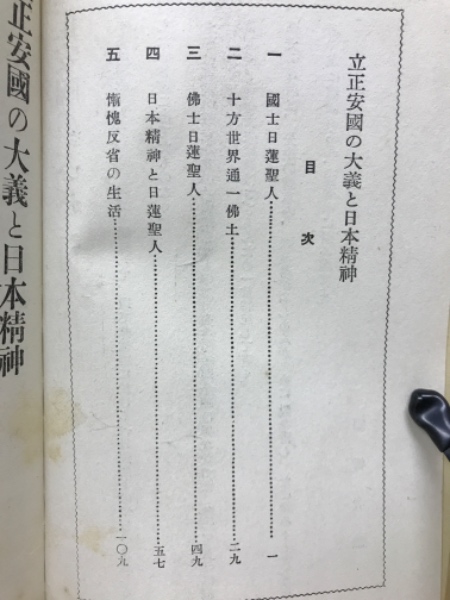 立正安國の大義と日本精神
目次
一 國士日蓮聖人 一
二 十方世界通一佛土 二九
三 佛士日蓮聖人 四九
四 日本精神と日蓮聖人 五七
五 慚愧反省の生活 一〇九
正安國の大義と日本精神